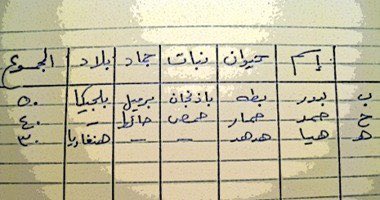 إسم حيوان نبات جماد بلاد المجموع
ب بدر بطه باذنجان برميل بلجيكا ٥٠
ح حمد حمار حمص حائط – ٤٠
ه هيا هدهد – – هنغاريا ٣٠